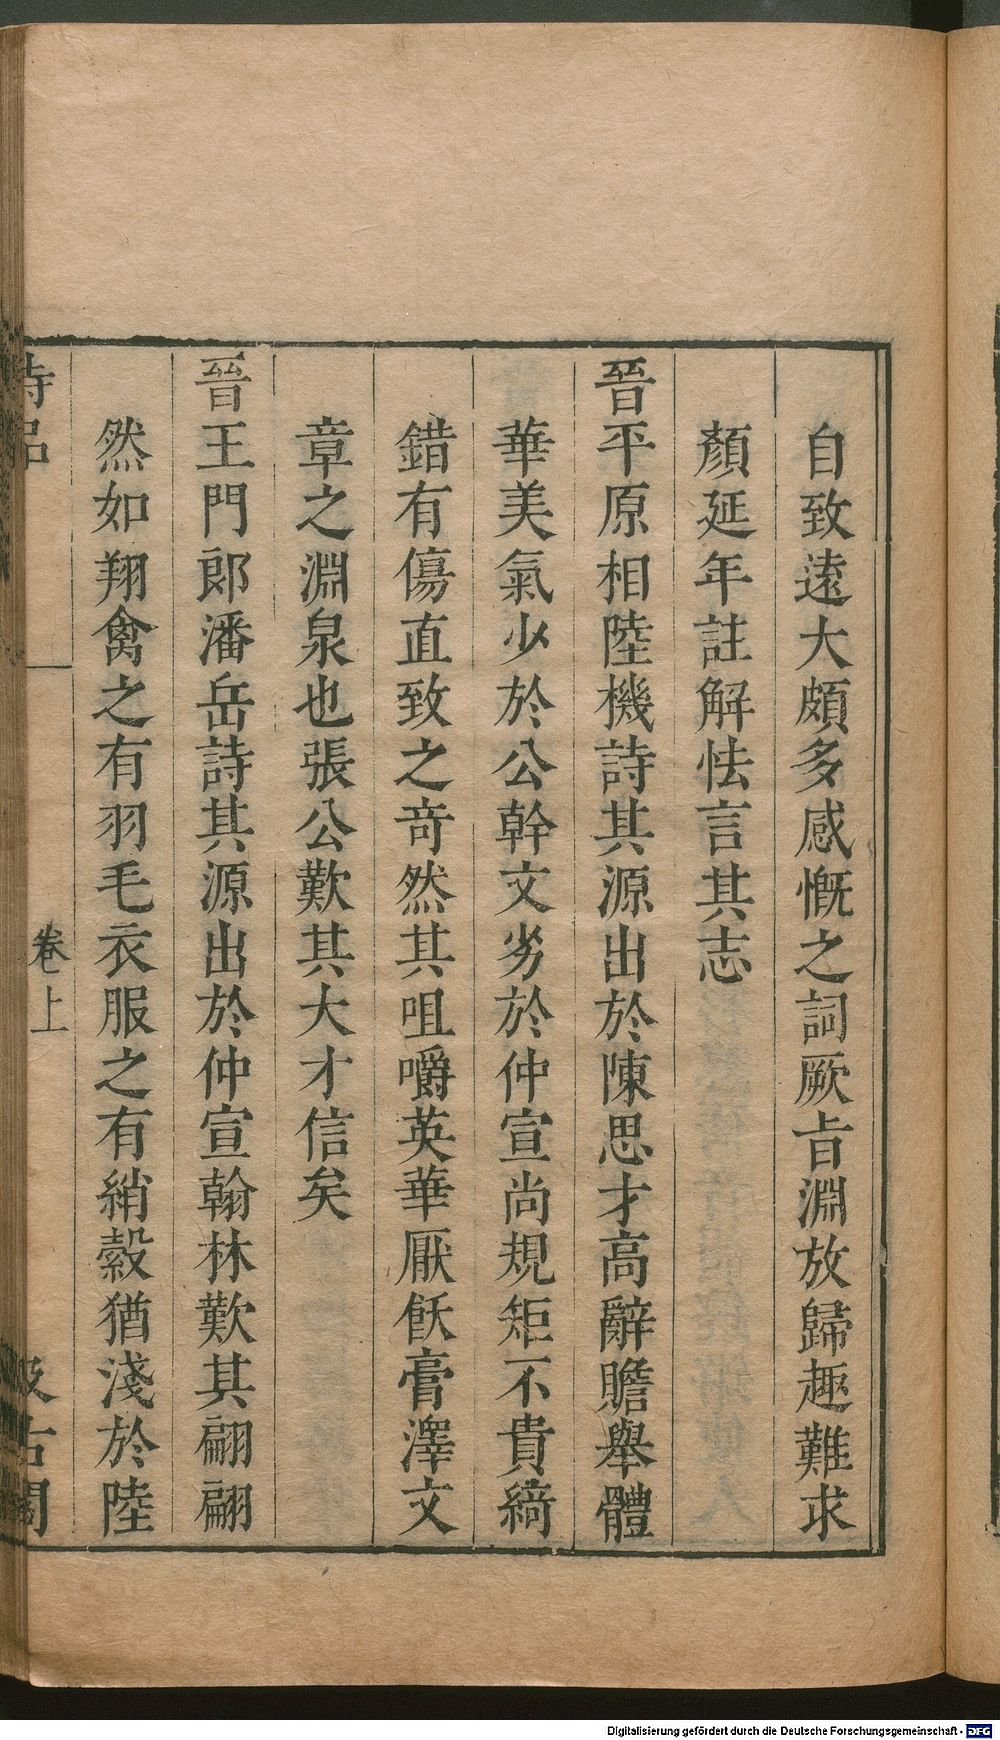 自致遠大頗多感慨之詞厥㫖淵放歸趣難求
顏延年註解怯言其志
晉平原相陸機詩其源出於陳思才高辭贍舉體
華美氣少於公幹文劣於仲宣尚規矩不貴綺
錯有傷直致之竒然其咀嚼英華厭飫膏澤文
章之淵泉也張公歎其大才信矣
晉王門郎潘岳詩其源出於仲宣翰林歎其翩翩
然如翔禽之有羽毛衣服之有綃縠猶淺於陸
詩品 卷上 汲古閣
Digitalisierung gefördert durch die Deutsche Forschungsgemeinschaft - DFG